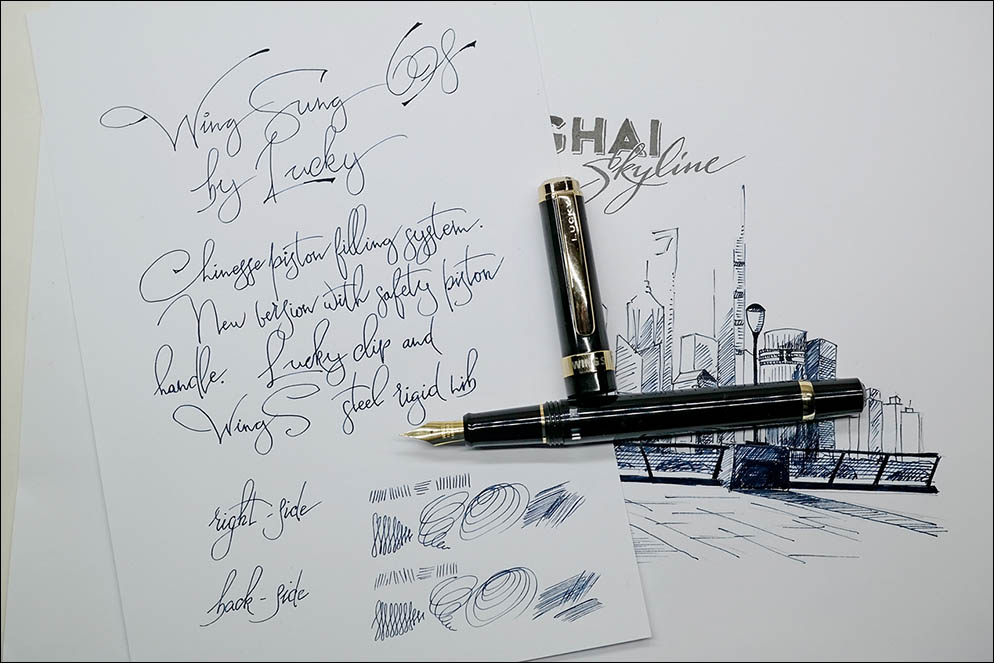 Wing Sung 698
by Lucky
Chinesse piston filling system.
New version with safety piston
handle. Lucky clip and
WingS steel rigid nib
right-side
back-side
GHAI
Skyline
LUCKY
WINGS